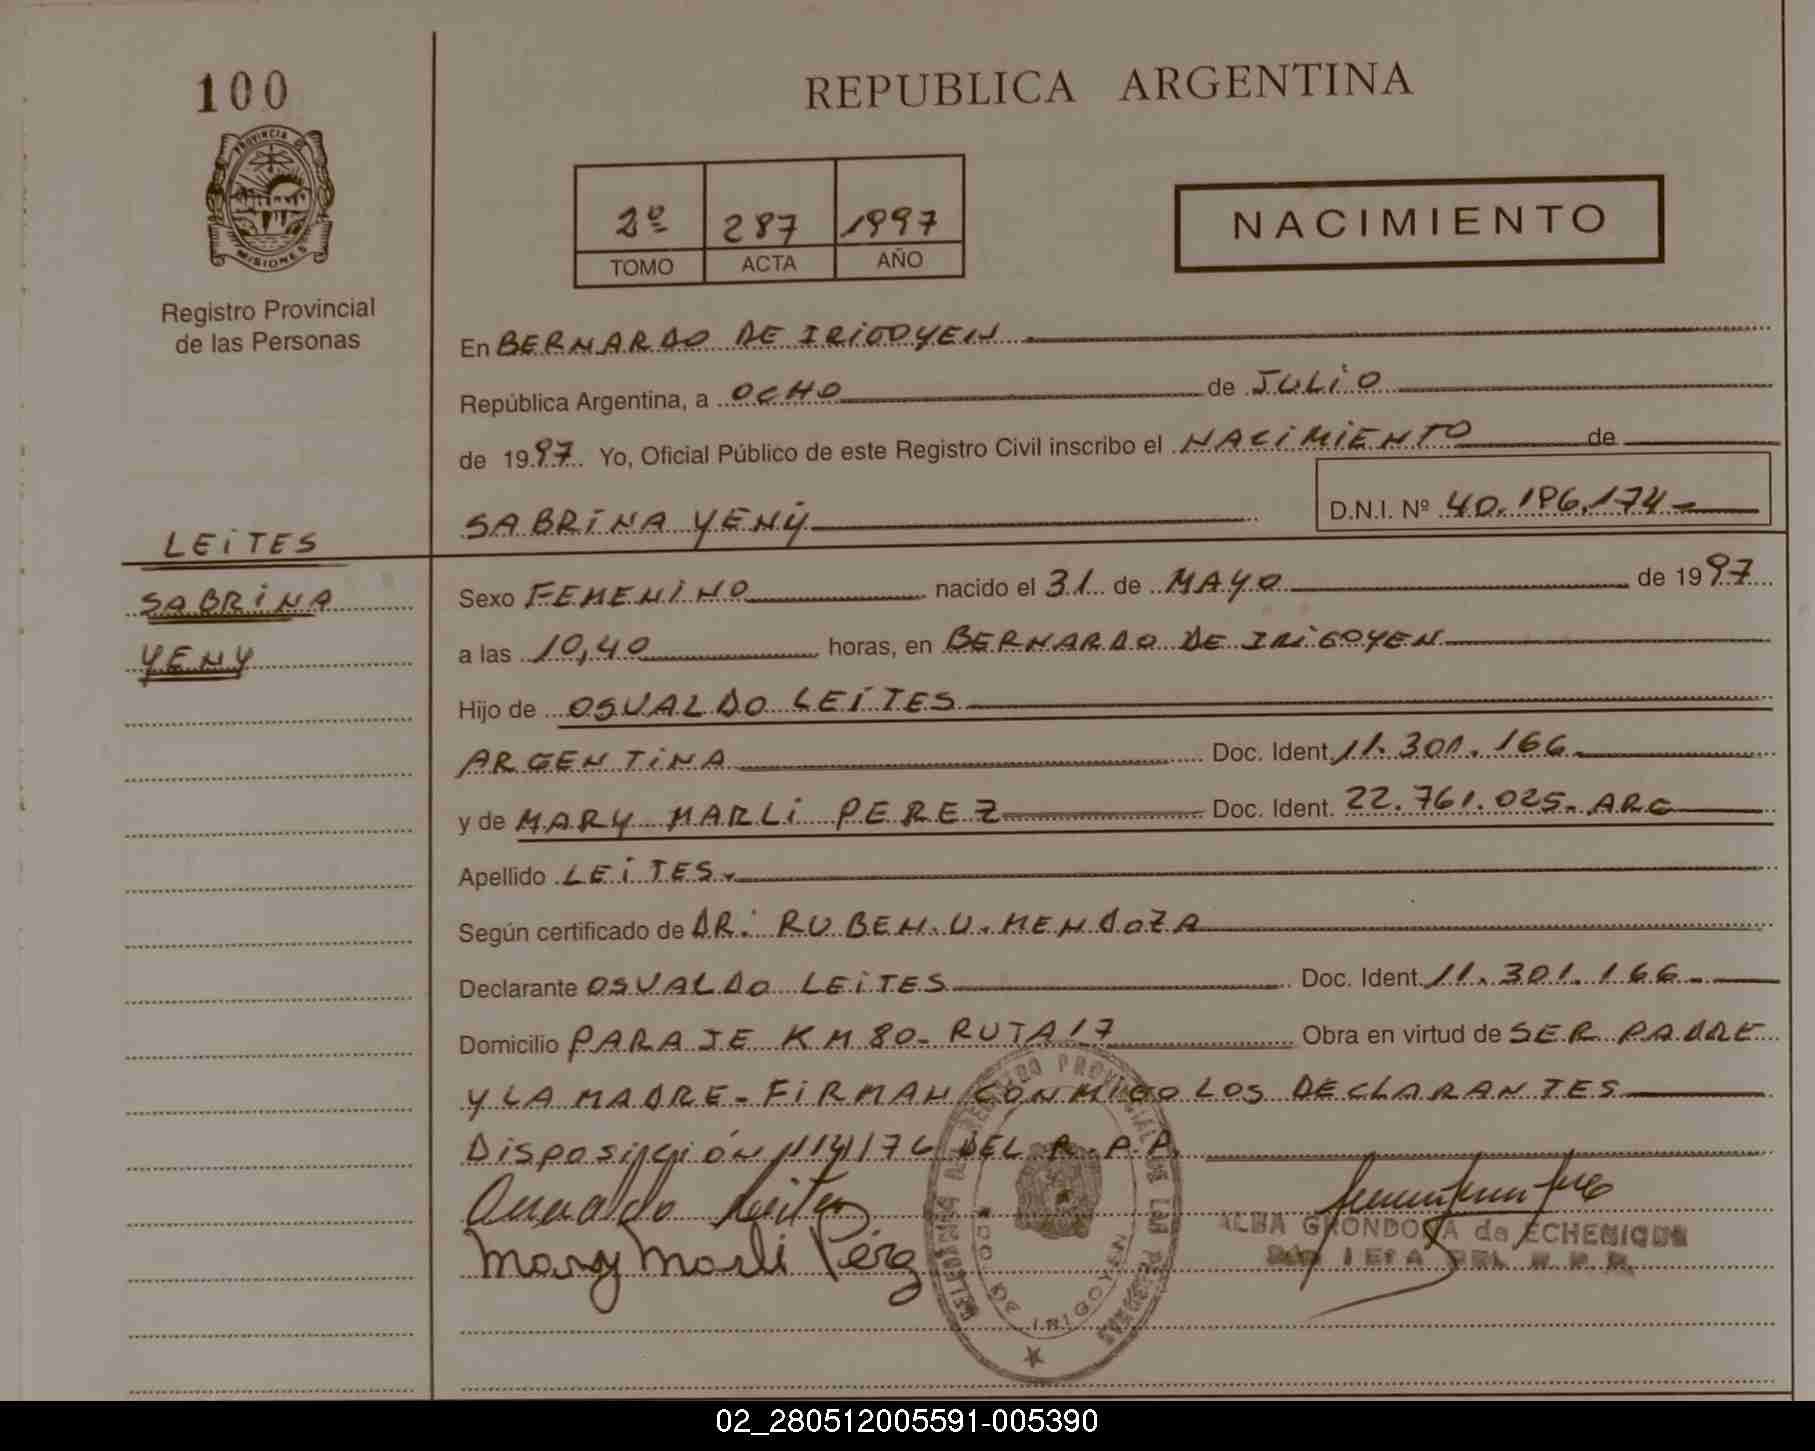 100
REPUBLICA ARGENTINA
PROVINCIA DE
MISIONES
2º 287 1997
TOMO ACTA AÑO
NACIMIENTO
Registro Provincial
de las Personas
En BERNARDO DE IRIGOYEN
República Argentina, a OCHO de JULIO
de 1997 Yo, Oficial Público de este Registro Civil inscribo el NACIMIENTO de
SABRINA YENY D.N.I. Nº 40.196.174
LEITES
SABRINA
YENY
Sexo FEMENINO nacido el 31 de MAYO de 1997
a las 10,40 horas, en BERNARDO DE IRIGOYEN
Hijo de OSVALDO LEITES
ARGENTINA Doc. Ident. 11.301.166
y de MARY MARLI PEREZ Doc. Ident. 22.761.025. ARG
Apellido LEITES.
Según certificado de DR: RUBEN.U.MENDOZA
Declarante OSVALDO LEITES Doc. Ident. 11.301.166
Domicilio PARAJE KM 80- RUTA 17 Obra en virtud de SER PADRE
Y LA MADRE- FIRMAN CONMIGO LOS DECLARANTES
Disposición DEL R.P.P.
Mary Marli Pérez
ALBA GRONDONA de ECHENIQUE
DELEGACION DEL REGISTRO PROVINCIAL DE LAS PERSONAS
BDO. DE IRIGOYEN
02_280512005591-005390